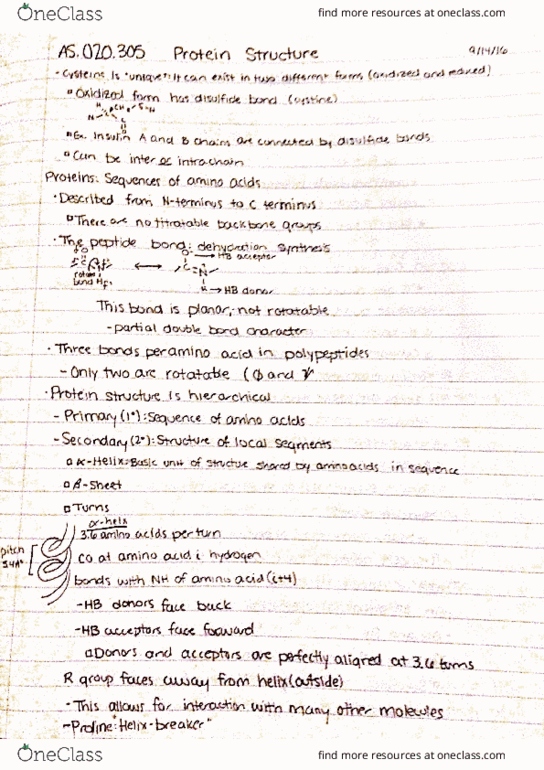 OneClass
find more resources at oneclass.com
AS.020.305 Protein Structure 9/14/16
- Cysteine is "unique": It can exist in two different forms (oxidized and reduced)
Oxidized form has disulfide bond (cystine)
Ex. Insulin A and B chains are connected by disulfide bonds
Can be inter or intrachain
Proteins: Sequences of amino acids
· Described from N-terminus to C terminus
There are no titratable backbone groups
· The peptide bond: dehydration synthesis
→ HB acceptor
C=N
H → HB donor
This bond is planar, not rotatable
- partial double bond character
· Three bonds per amino acid in polypeptides
- Only two are rotatable (ϕ and ψ
· Protein structure is hierarchical
- Primary (1°): Sequence of amino acids
- Secondary (2°): Structure of local segments
α-Helix: Basic unit of structure shared by aminoacids in sequence
β-Sheet
Turns
α-helix
3.6 amino acids per turn
pitch
5.4A°
CO at amino acid i hydrogen
bonds with NH of amino acid (i+4)
- HB donors face back
- HB acceptors face forward
Donors and acceptors are perfectly aligned at 3.6 turns
R group faces away from helix (outside)
- This allows for interaction with many other molecules
- Proline: "Helix-breaker"
OneClass
find more resources at oneclass.com